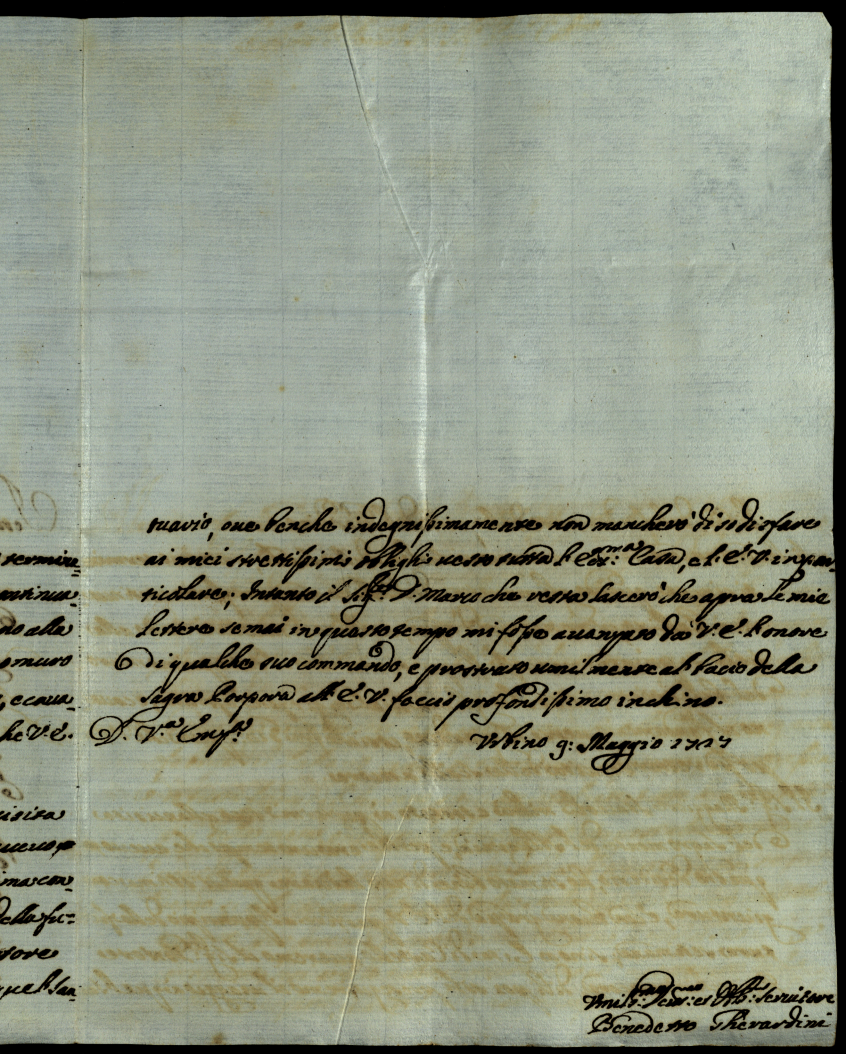 termine-
ontinua-
no alla
omuro
, e caua-
he V. E.
uisita
ima con-
della fu-
tore
quel San-
tuario, oue benche indegnissimamente non mancherò di sodisfare
ai miei strettissimi oblighi uerso tutta l' Ecc.ma Casa, e l' E. V. in par-
ticolare; Intanto il Sig.r D. Marco che resta lascerò che apra le mie
lettere se mai in questo tempo mi fosse auanzato da V. E. l' onore
di qualche suo commando, e prostrato umilmente al bacio della
sagra Porpora all' E. V. faccio profondissimo inchino.
D. V.a Em.za
Vrbino 9: Maggio 1717
Vmil.mo Deu.mo et Obl.mo Seruitore
Benedetto Gherardini